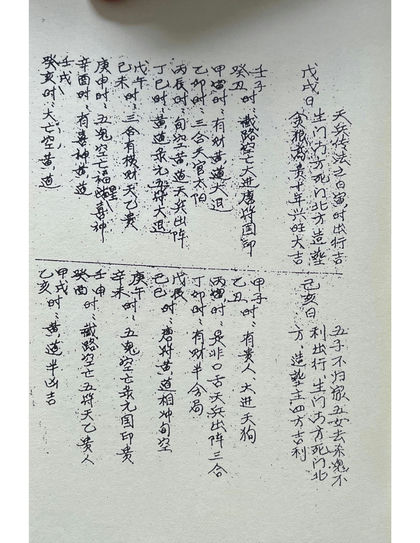 天兵传法之日寅时出行吉
戊戌日
生门南方死门北方造塟
贵十年兴旺大吉
壬子
癸丑 时:截路空亡大进唐符国印
甲寅时:有财黄道大退
乙卯时:三合天官太阳
丙辰时:旬空黄道天兵出阵
丁巳时:黄道
戊午
己未 时:三合有
天乙贵
庚申时:五鬼空亡福星喜神
辛酉时:有喜神黄道
壬戌
癸亥时:大亡空黄道
五子不归
五女去
不
己亥日
利出行 生门南方死门北
方 造塟主四方吉利
甲子
乙丑 时:有贵人、大进天狗
丙寅时:是非口舌天兵出阵三合
丁卯时:有财半合局
戊辰
己巳 时:唐符黄道相冲旬空
庚午
辛未 时:五鬼空亡
国印贵
壬申
癸酉 时:截路空亡五符天乙贵人
甲戌
乙亥 时:黄道半凶吉